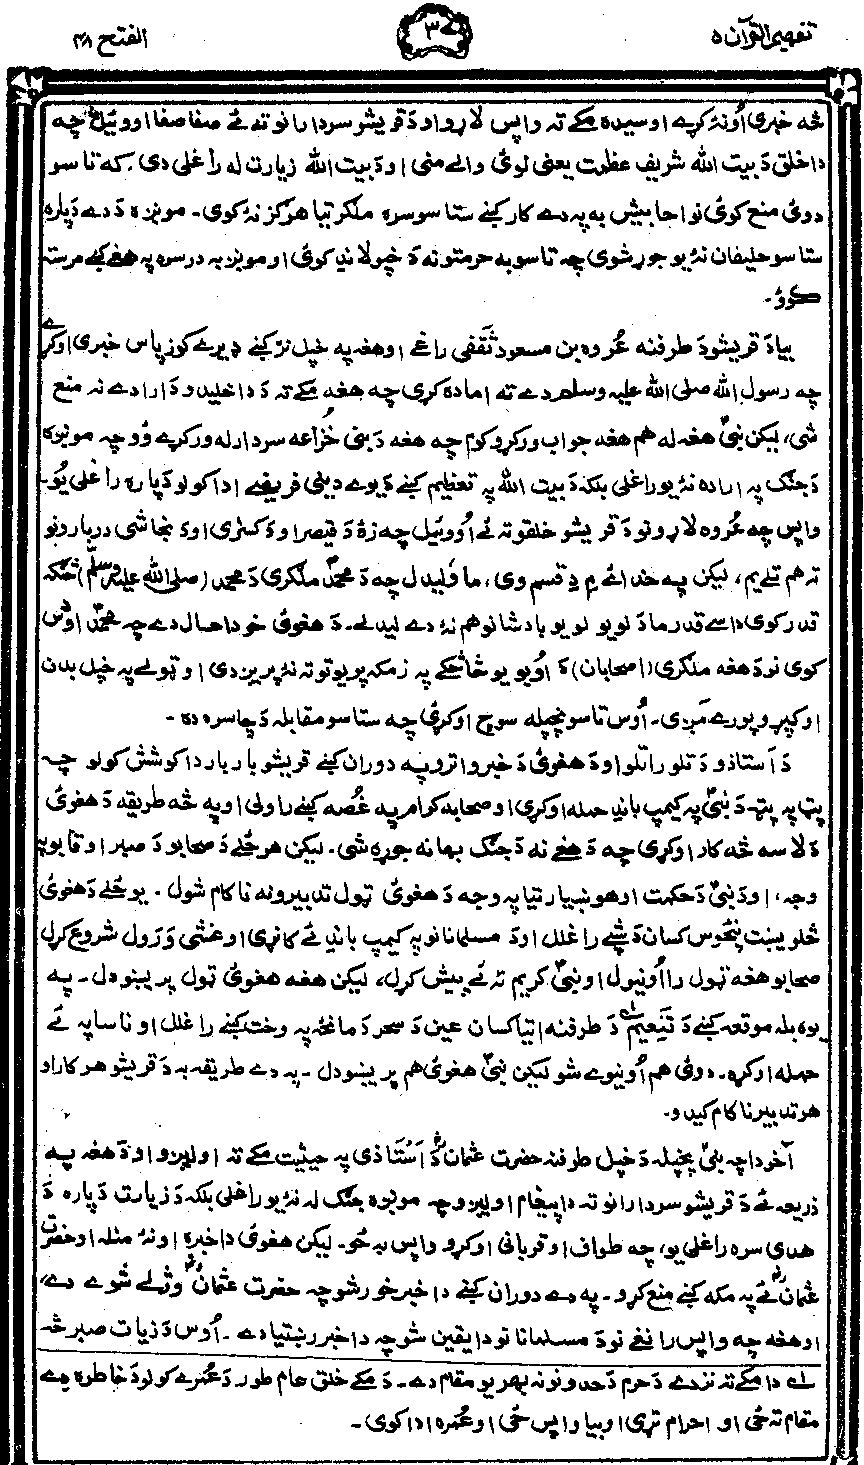 تفهیم القرآن ۵
۳۷
الفتح ۴۸
څه خبری اُونۀ کړے اوسیده مکے ته واپس لاړو او دَ قریشو سردارانو ته ئے صفا صفا اووئیل چه
داخلق دَ بیت الله شریف عظمت یعنی لوئی والے منی او دَ بیت الله زیارت له راغلی دی. که تاسو
دوئ منع کوئ نو احابیش به په دے کار کښے ستاسو سره ملګرتیا هرګز نۀ کوی۔ مونږه دَ دے دَپاره
ستاسو حلیفان نۀ یو جوړ شوی چه تاسو به حرمتونه دَ خپو لاندِ کوئ او مونږ به درسره په هغے کښے مرسته
کوؤ۔
بیا دَ قریشو دَ طرفنه عُروه بن مسعود ثَقَفی راغے او هغه په خپل نز کښے ډیرے کوز پاس خبری اوکړے
چه رسول الله صلی الله علیه وسلم دے ته اماده کړی چه هغه مکے ته دَ داخلیدو دَ ارادے نه منع
شی، لیکن نبیؐ هغه له هم هغه جواب ورکړو کوم چه هغه دَ بنی خُزاعه سردار له ورکړے وُو چه مونږه
دَ جنګ په اراده نۀ یو راغلی بلکه دَ بیت الله په تعظیم کښے دَ یوے دینی فریضے ادا کولو دَپاره راغلی یُو۔
واپس چه عُروه لاړو نو دَ قریشو خلقو ته ئے اُووئیل چه زۀ دَ قیصر او دَ کسریٰ او دَ نجاشی دربارونو
ته هم تلے یم، لیکن په خدائے مِ دِ قسم وی، ما وُلیدل چه دَ محمدؐ ملګری دَ محمد (صلی الله علیه وسلم) څنګه
قدر کوی داسے قدر ما دَ لویو لویو بادشانو هم نۀ دے لیدلے۔ دَ هغوئ خو دا حال دے چه محمدؐ اودس
کوی نو دَ هغه ملګری (اصحابان) دَ اُوبو یو څاڅکے په زمکه پریوتو ته نۀ پریږدی او ټولے په خپل بدن
او کپړو پورے مَږی۔ اُوس تاسو پخپله سوچ اوکړئ چه ستاسو مقابله دَ چا سره ده۔
دَ اَستاذو دَ تلو راتلو او دَ هغوئ دَ خبرو اترو په دوران کښے قریشو بار بار دا کوشش کولو چه
پټ په پټه دَ نبیؐ په کیمپ باندِ حمله اوکړی او صحابه کرام په غُصه کښے راولی او په څه طریقه دَ هغوئ
دَ لاسه څه کار اوکړی چه دَ هغے نه دَ جنګ بهانه جوړه شی۔ لیکن هر ځلے دَ صحابو دَ صبر او قابو په
وجه، او دَ نبیؐ دَ حکمت او هوښیارتیا په وجه دَ هغوئ ټول تدبیرونه ناکام شول۔ یو ځلے دَ هغوئ
څلویښت پنځوس کسان دَ شپے راغلل او دَ مسلمانانو په کیمپ باندِ ئے کاڼری او غشی وَرَول شروع کړل
صحابو هغه ټول را اُونیول او نبیؐ کریم ته ئے پیش کړل، لیکن هغه هغوئ ټول پریښودل۔ په
یوه بله موقعه کښے دَ تَنعِیم ۱ دَ طرفنه اتیا کسان عین دَ سحر دَ مانځه په وخت کښے راغلل او ناسا په ئے
حمله اوکړه۔ دوئ هم اُونیوے شو لیکن نبیؐ هغوئ هم پریښودل۔ په دے طریقه به دَ قریشو هر کار او
هر تدبیر ناکام کیدو۔
آخر دا چه نبیؐ پخپله دَ خپل طرفنه حضرت عثمانؓ دَ اَستَاذی په حیثیت مکے ته اولیږو او دَ هغه په
ذریعه ئے دَ قریشو سردارانو ته دا پیغام اولیږو چه مونږه جنګ له نۀ یو راغلی بلکه دَ زیارت دَپاره دَ
هدی سره راغلی یو، چه طواف او قربانی اوکړو واپس به ځو۔ لیکن هغوئ دا خبره اونۀ منله او حضرت
عثمانؓ ئے په مکه کښے منع کړو۔ په دے دوران کښے دا خبر خور شو چه حضرت عثمانؓ وژلے شوے دے،
او هغه چه واپس رانغے نو دَ مسلمانانو دا یقین شو چه دا خبر رښتیا دے۔ اُوس دَ زیات صبر څه
۱ دا مکے ته نزدے دَ حرم دَ حدونو نه بهر یو مقام دے۔ دَ مکے خلق عام طور دَ عُمرے کولو دَ خاطره دے
مقام ته ځی او احرام تړی او بیا واپس ځی او عُمره ادا کوی۔